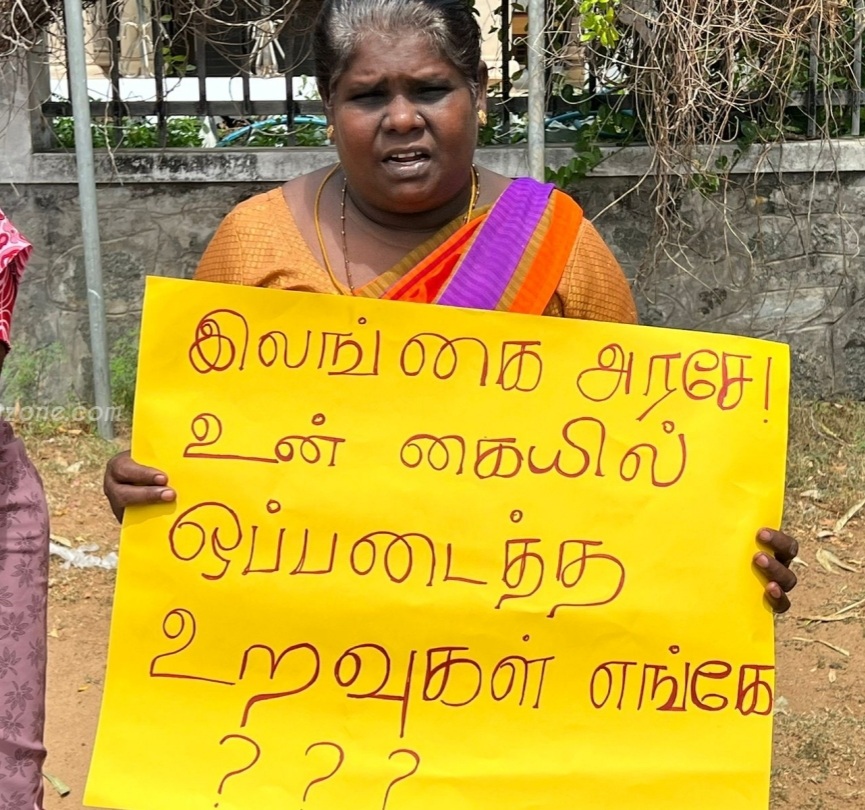 இலங்கை அரசே!
உன் கையில்
ஒப்படைத்த
உறவுகள் எங்கே
? ? ?
zone.com